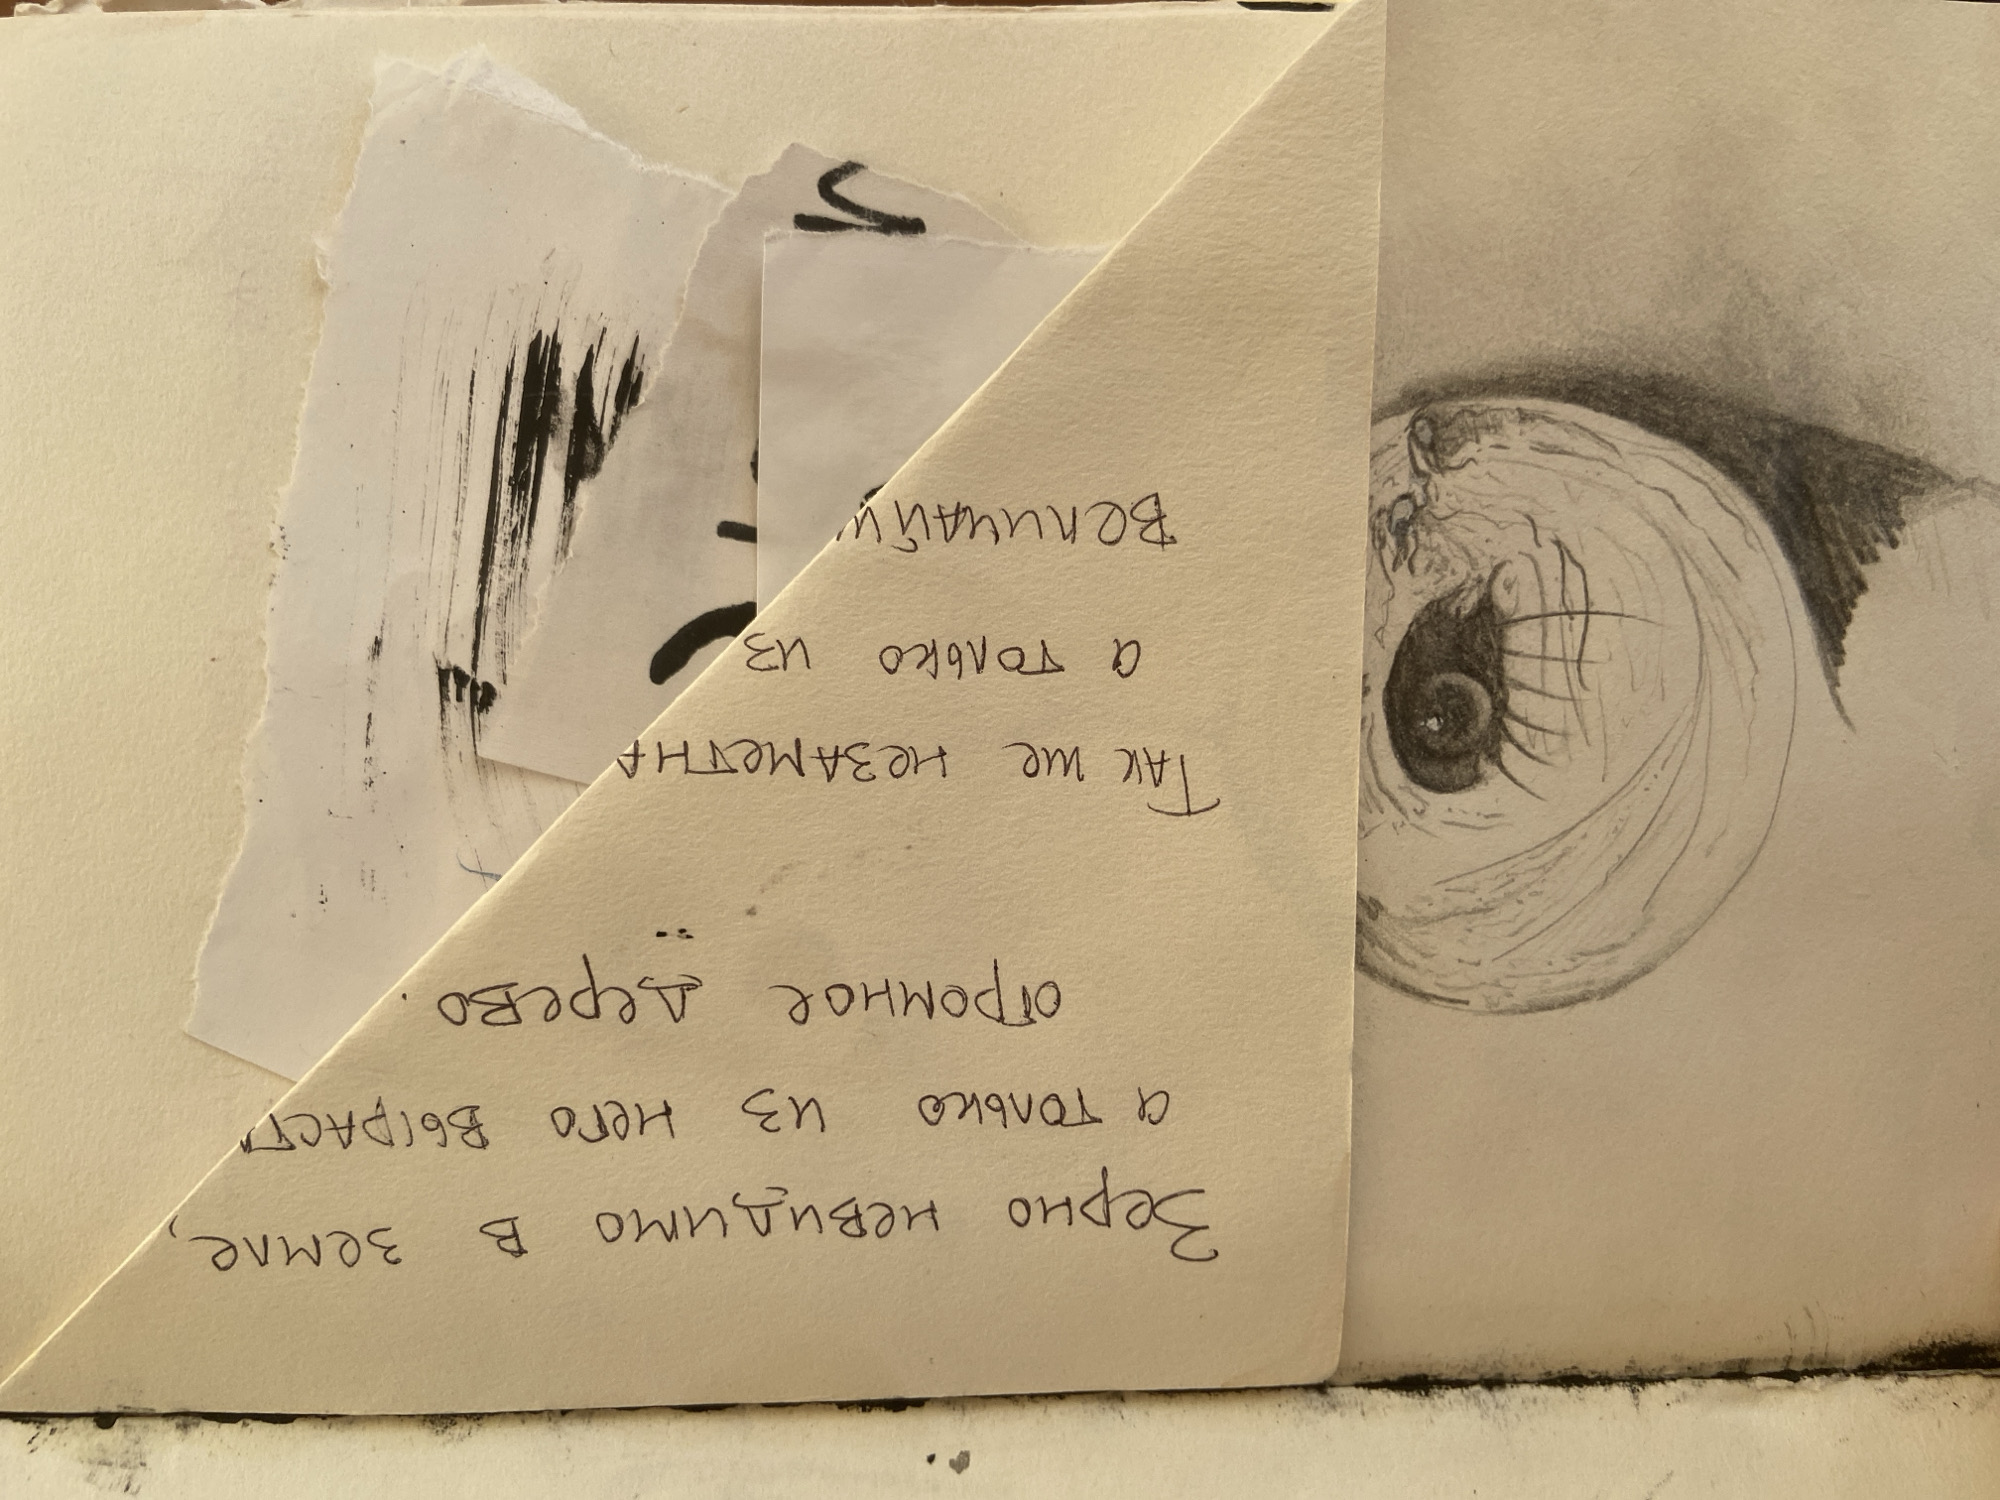 Зерно невидимо в земле,
а только из него выраст
огромное дерево.
Так же незаметна
а только из
Величай